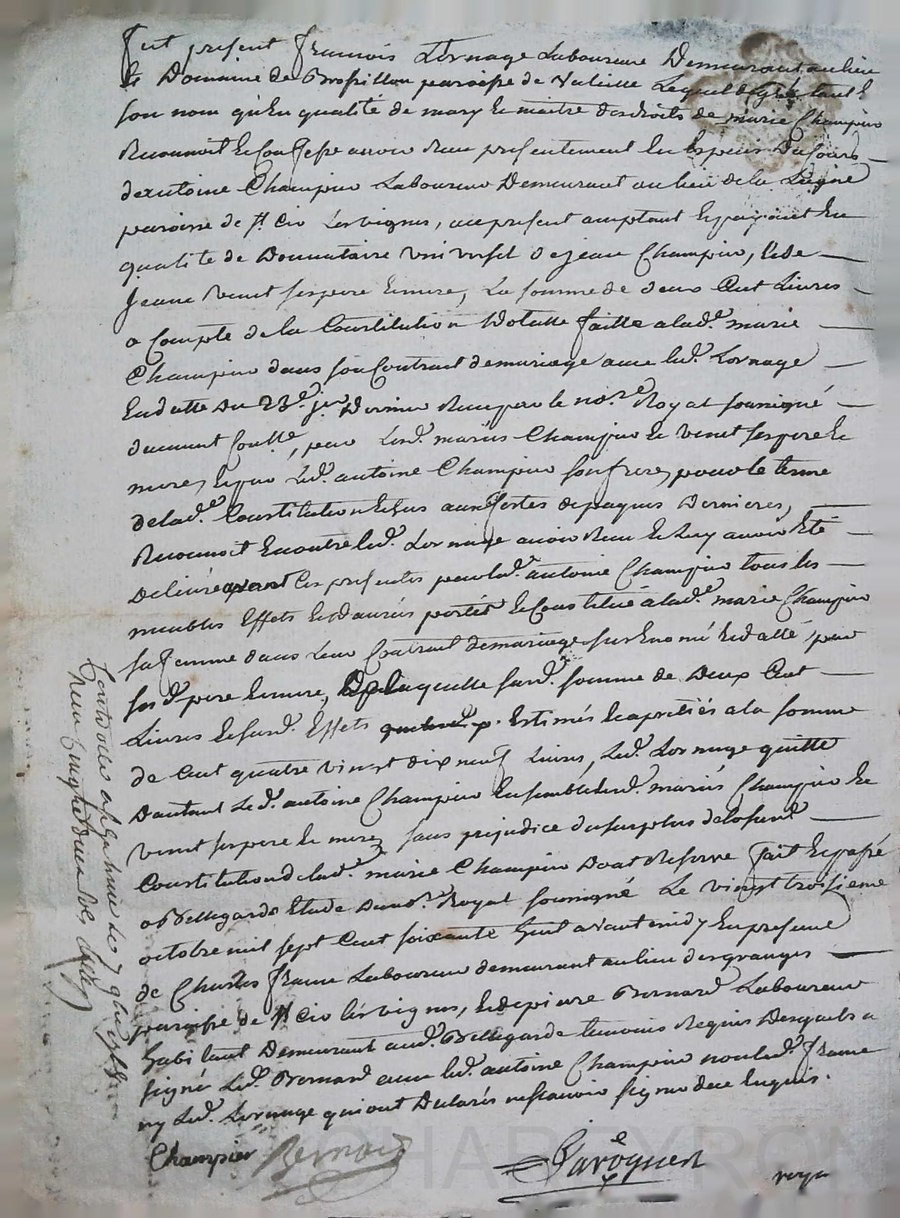 fut present francois Lornage Laboureur Demeurant au lieu
le Domaine de paroisse de Lequel agré tant à
son nom qu'en qualité de mary et maitre des droits de marie Champier
Reconnoit et Confesse avoir Reçu presentement en Especes Du Cours
d'antoine Champier Laboureur Demeurant au lieu de la
paroisse de st Cir Lesvignes, acceptant et payant En
qualité de Donnataire universel de jean Champier, et de
jeanne vinet ses pere et mere, La somme de deux Cent Livres
a Compte de la Constitution Dotalle faitte a lad.e marie
Champier dans son Contract de mariage avec led. Lornage
En datte du 23.e Dernier Reçu par le no.re Royal soussigné
duement Con.llé, par Lesd. mariés Champier et vinet ses pere et
mere, et par led. antoine Champier son frere, pour le terme
de lad.e Constitution Echus aux fêtes de paques Dernieres,
Reconnoit En outre led. Lornage avoir Reçu et luy avoir Eté
Delivré avant Ces presentes par led. antoine Champier tous les
meubles Effets et danrés portés et Constitué a lad.e marie Champier
sa femme dans leur Contract de mariage sus Enoncé et datté, par
sesd. pere et mere, De laquelle susd. somme de Deux Cent
Livres et susd. Effets Estimés et apretiés a la somme
de Cent quatre vingt dix neuf Livres, led. Lornage quitte
D'autant led. antoine Champier Ensemble lesd. mariés Champier et
vinet ses pere et mere, sans prejudice du surplus de la susd.
Constitution de lad. marie Champier Dont Reserve fait et passé
a Bellegarde Etude du no.re Royal soussigné Le vingt troisieme
octobre mil sept Cent soixante huit avant midy En presence
de Charles frame Laboureur demeurant au lieu des granges
paroisse de st Cir lésvignes, et de pierre Bernard Laboureur
habitant Demeurant aud. Bellegarde temoins Requis Desquels a
signé led. Bernard avec led. antoine Champier non led. frame
ny led. Lornage qui ont Declarés ne sçavoir signer de ce Enquis.
Champier Bernard
CHARTEYRON